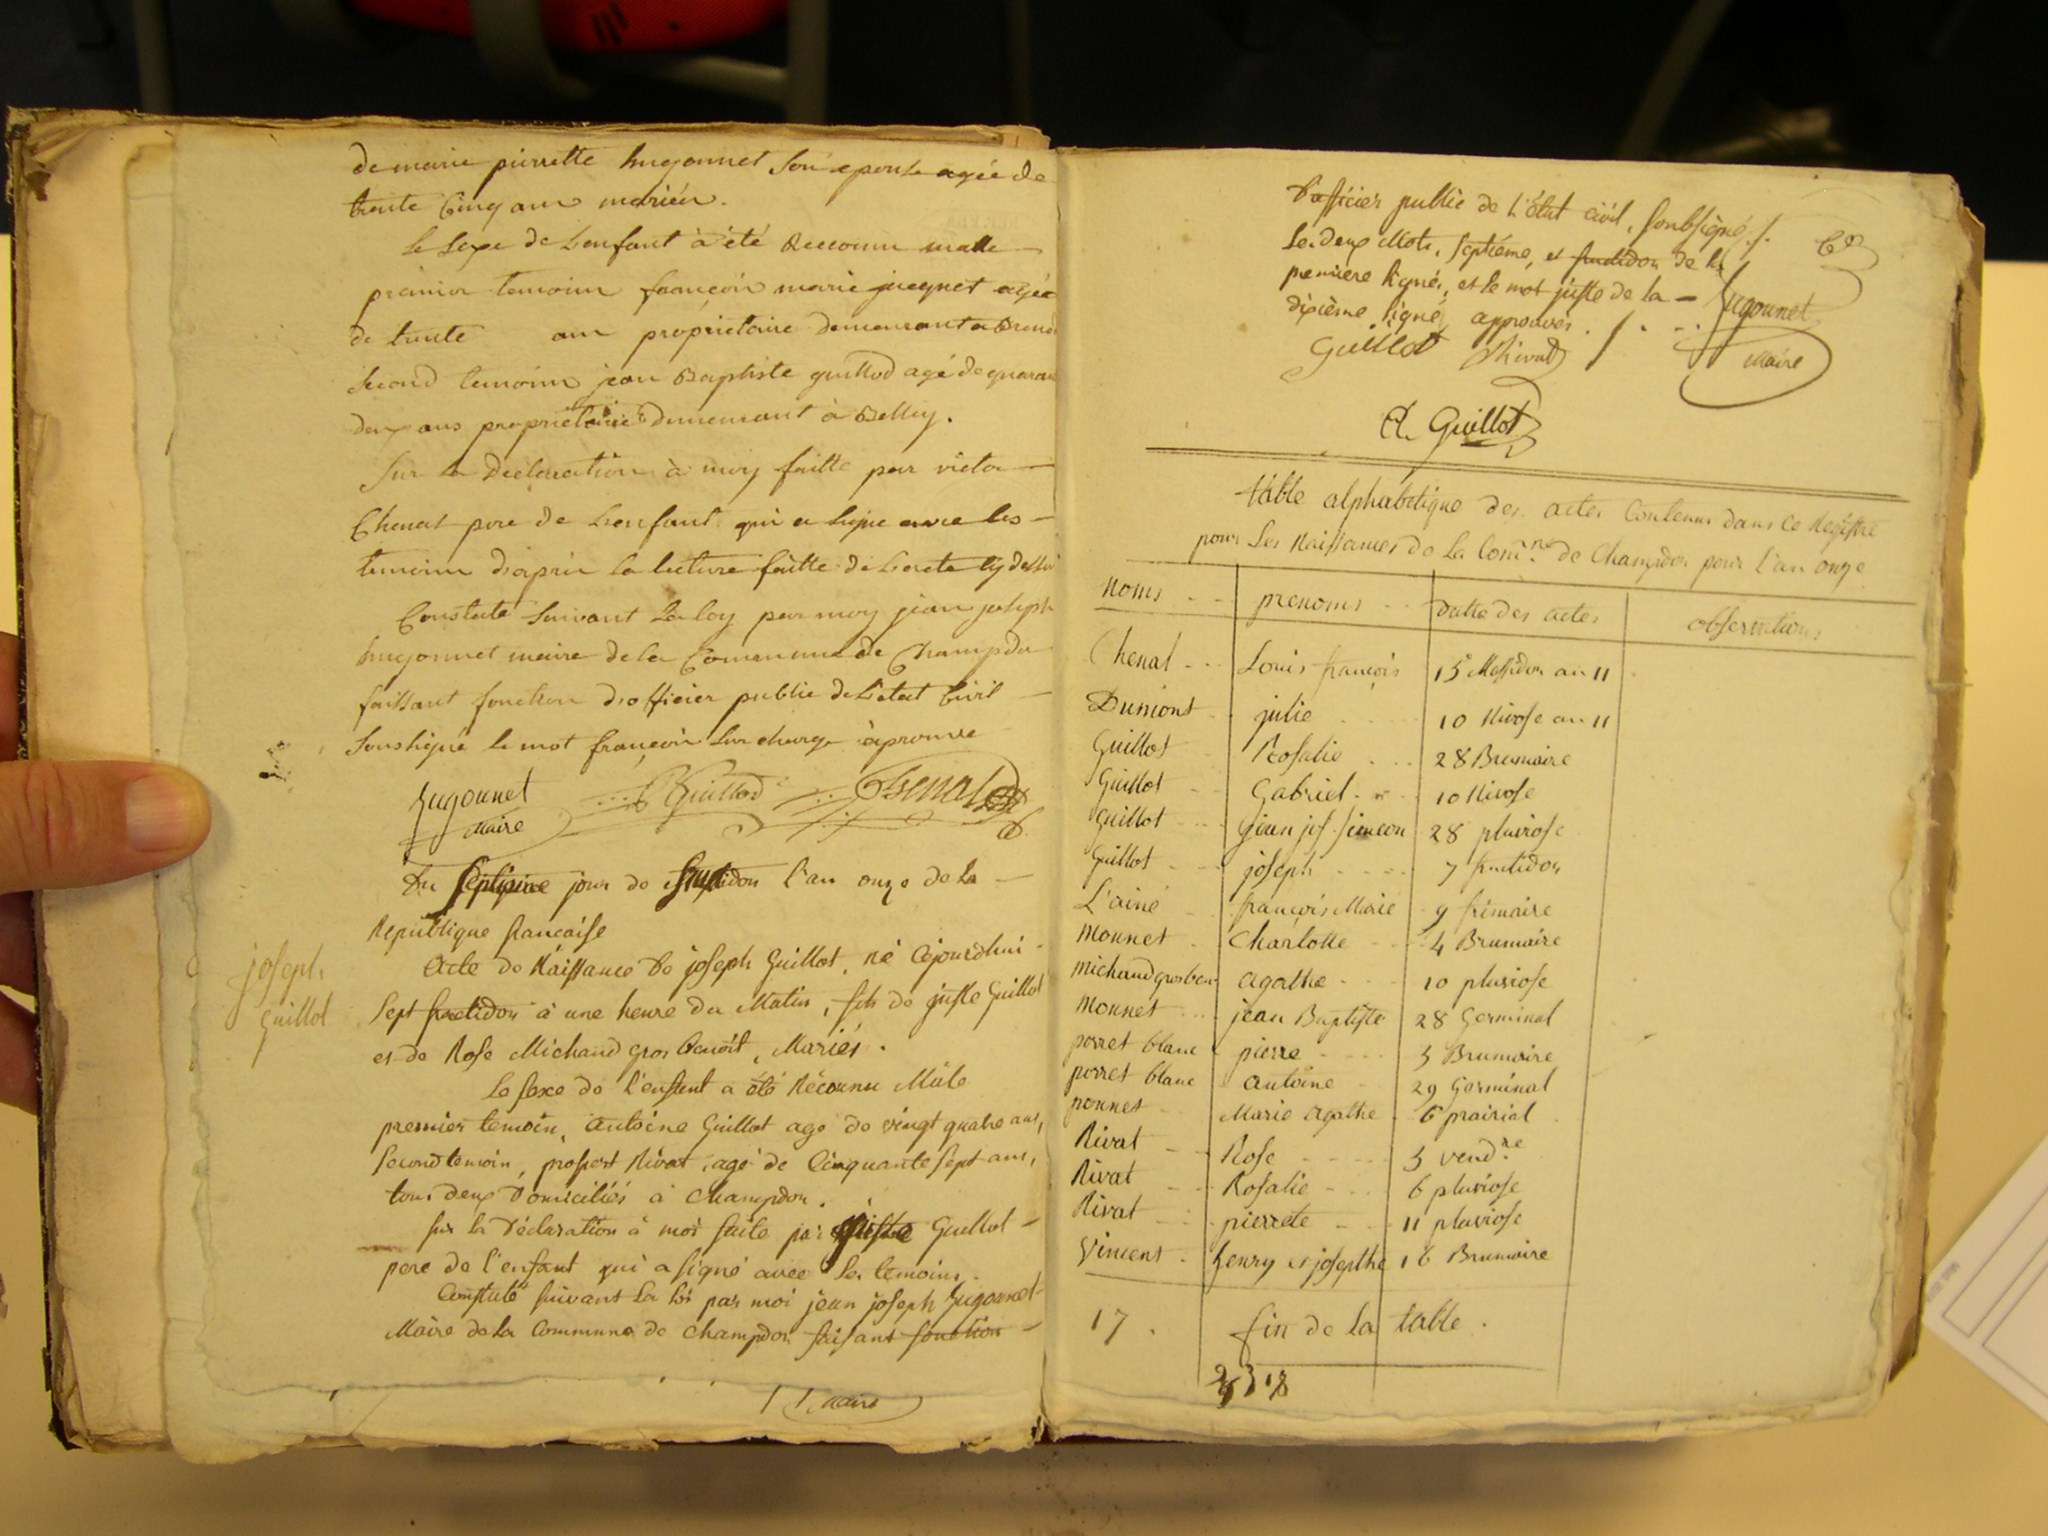 de marie pierrette hugonnet son epouse agée de
trente cinq ans mariés.
le sexe de Lenfant à été Reconnu malle
premier temoins françois marie jacquet agée
de trente ans propriétaire demeurant a Breno
second temoins jean Baptiste guillod agé de quaran
deux ans proprietaire demeurant à Belley.
Sur la declaration à moy faitte par victor
Chenat pere de Lenfant qui a signe avec les
temoins d'aprés la lecture faitte de Lacte cy dessu
Constaté suivant La loy par moy jean joseph
hugonnet maire de la Commune de Champdor
faissant fonction d'officier public de L'etat Civil
Soussigné le mot françois surcharge àprouvé
hugonnet Guillod Chenat
Maire
du septième jour de fructidor l'an onze de la
Republique francaise
joseph
Guillot
Acte de Naissance de joseph Guillot, né cejourdhui
sept fructidor à une heure du Matin, fils de juste Guillot
et de Rose Michaud gros benoît, Mariés.
Le sexe de l'enfant a été Réconnu Mâle
premier temoin, Antoine Guillot agé de vingt quatre ans,
second temoin, prospert Rivat, agé de Cinquante sept ans,
tous deux Domiciliés à Champdor.
sur la Déclaration à moi faite par juste Guillot
pere de l'enfant qui a signé avec les temoins.
Constaté suivant La loi par moi jean joseph hugonnet
Maire de la Commune de Champdor faisant fonction
Maire
D'officier public de L'état civil, soubsigné.
Les deux Mots, septiéme, et fructidor de la
premiere ligne, et le mot juste de la
dixième ligne approuvés. hugonnet
Guillot Rivat Maire
A. Guillot
table alphabétique des actes Contenus dans ce Registre
pour Les Naissances de La Com.ne de Champdor pour l'an onze
Noms prenoms Datte des actes observations
Chenat Louis françois 15 Messidor an 11
Dumont julie 10 Nivose an 11
Guillot Rosalie 28 Brumaire
Guillot Gabriel 10 Nivose
Guillot jean jos. simeon 28 pluviose
Guillot joseph 7 fructidor
L'ainé françois Marie 9 frimaire
Monnet Charlotte 4 Brumaire
Michaud grosben agathe 10 pluviose
Monnet jean Baptiste 28 Germinal
porret blanc pierre 3 Brumaire
porret blanc antoine 29 Germinal
ponnet Marie agathe 6 prairial
Rivat Rose 3 vend.re
Rivat Rosalie 6 pluviose
Rivat pierrete 11 pluviose
Vincent henry et josephe 16 Brumaire
17. fin de la table.